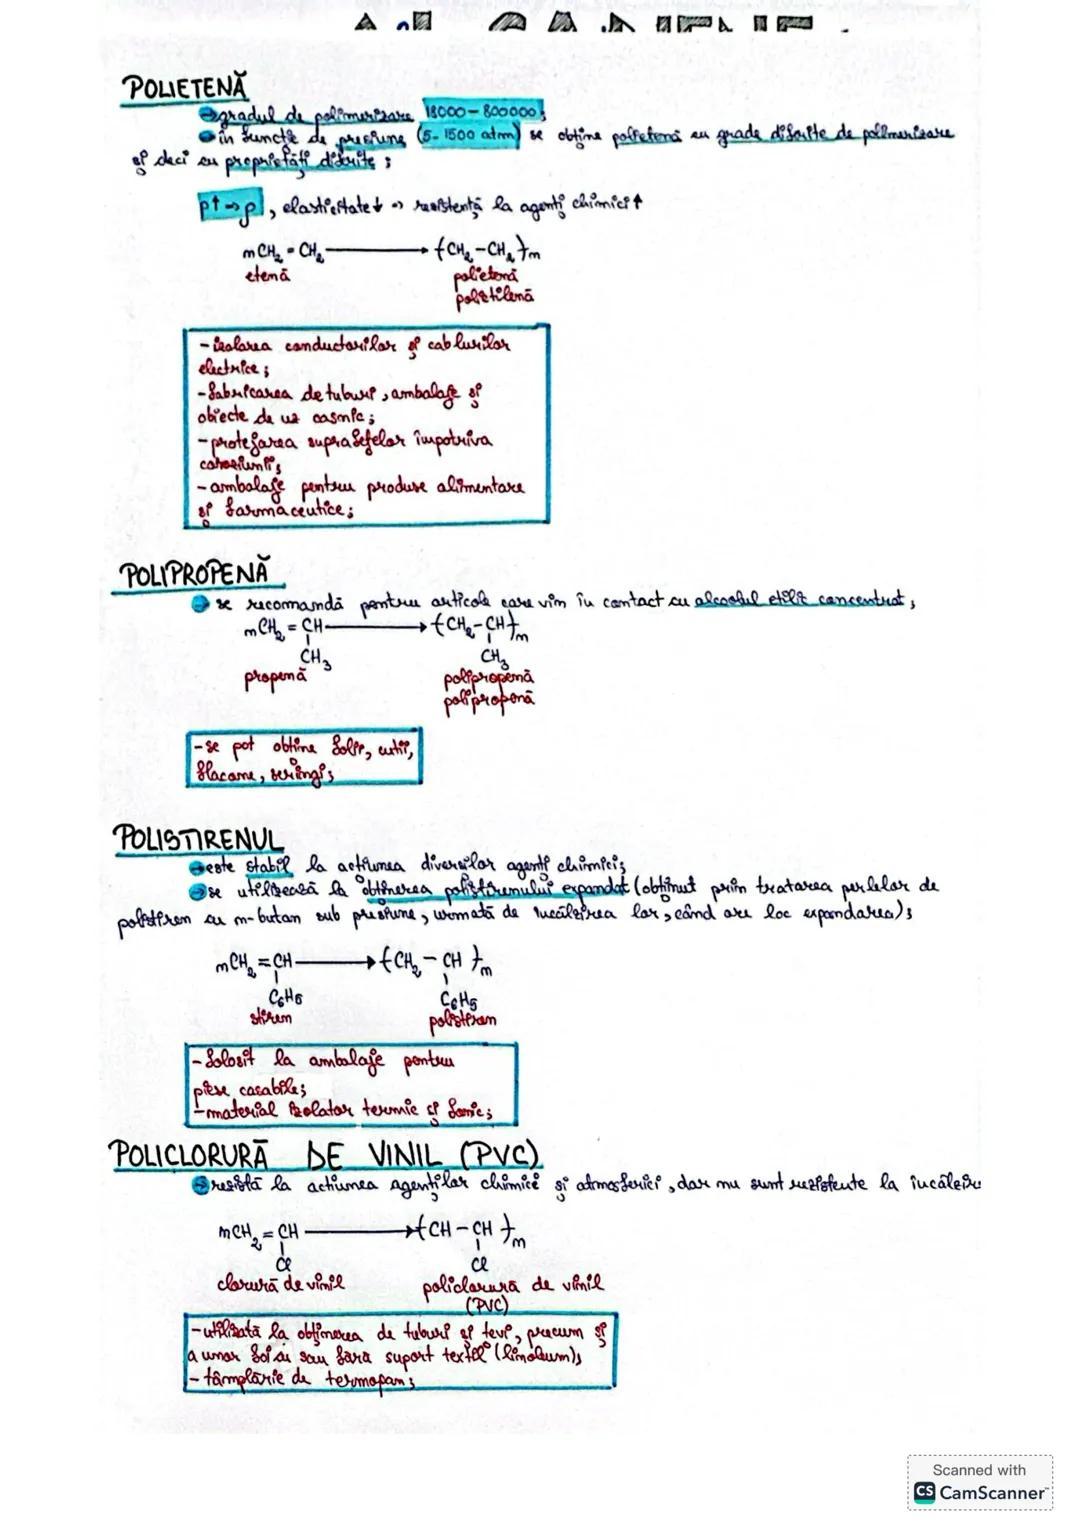 POLIETENĂ
gradul de polimerizare 18000-800000;
în funcție de presiune (5-1500 atm) se obține polietenă cu grade diferite de polimerizare
și deci cu proprietăți diferite;
p↑ => ρ↑, elasticitate↓ => rezistență la agenți chimici↑
nCH₂=CH₂ → -(CH₂-CH₂)-n
etenă polietenă
polietilenă
-izolarea conductorilor și cablurilor
electrice;
-fabricarea de tuburi, ambalaje și
obiecte de uz casnic;
-protejarea suprafețelor împotriva
coroziunii;
-ambalaje pentru produse alimentare
și farmaceutice;
POLIPROPENĂ
se recomandă pentru articole care vin în contact cu alcoolul etilic concentrat;
nCH₂=CH → -(CH₂-CH)-n
CH₃ CH₃
propenă polipropenă
polipropenă
-se pot obține folii, cutii,
flacoane, seringi;
POLISTIRENUL
este stabil la acțiunea diverșilor agenți chimici;
se utilizează la obținerea polistirenului expandat (obținut prin tratarea perlelor de
polistiren cu n-butan sub presiune, urmată de încălzirea lor, când are loc expandarea);
nCH₂=CH → -(CH₂-CH)-n
C₆H₅ C₆H₅
stiren polistiren
-folosit la ambalaje pentru
piese casabile;
-material izolator termic și fonic;
POLICLORURĂ DE VINIL (PVC)
rezistă la acțiunea agenților chimici și atmosferici, dar nu sunt rezistente la încălzire
nCH₂=CH → -(CH-CH)-n
Cl Cl
clorură de vinil policlorură de vinil
(PVC)
-utilizată la obținerea de tuburi și țevi, precum și
a unor foi cu sau fără suport textil (linoleum);
-tâmplărie de termopan;
Scanned with
CS CamScanner